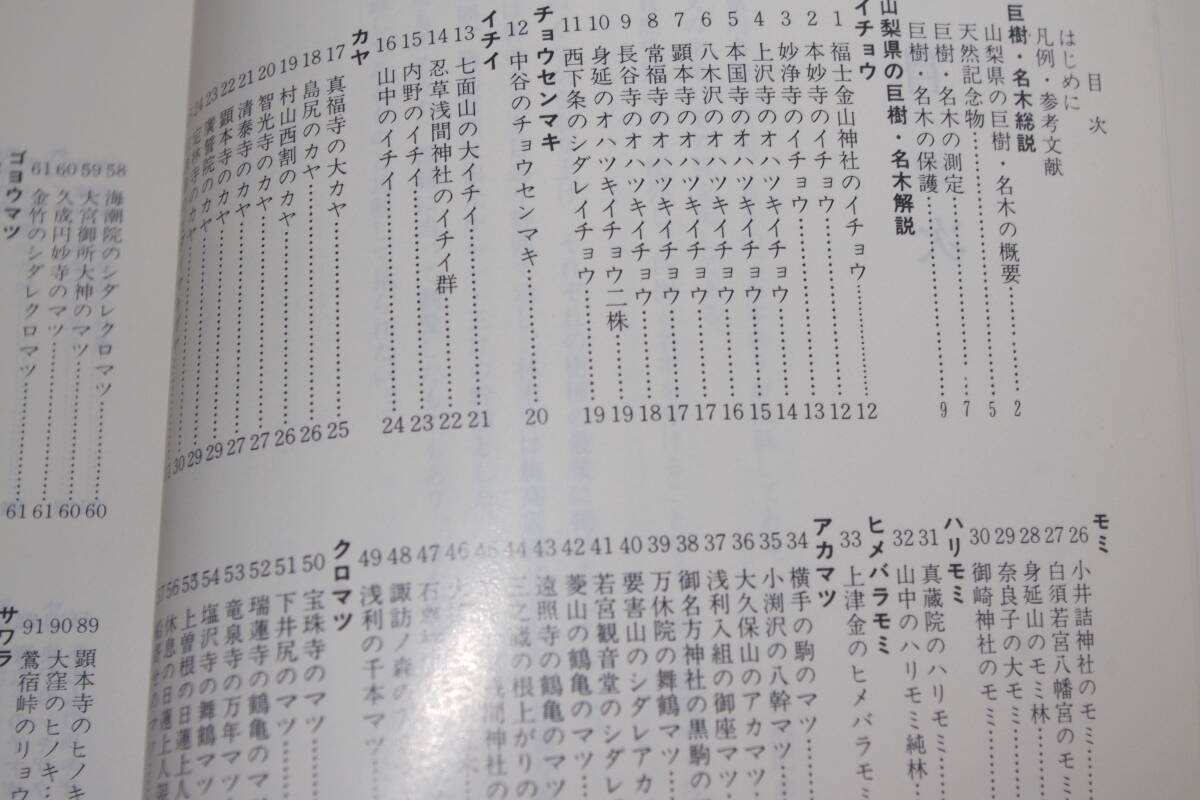 目次
はじめに
凡例・参考文献
巨樹・名木総説
山梨県の巨樹・名木の概要……2
天然記念物……5
巨樹・名木の測定……7
巨樹・名木の保護……9
山梨県の巨樹・名木解説
イチョウ
1 福士金山神社のイチョウ……12
2 本妙寺のイチョウ……12
3 妙浄寺のイチョウ……13
4 上沢寺のオハツキイチョウ……14
5 本国寺のオハツキイチョウ……15
6 八木沢のオハツキイチョウ……16
7 顕本寺のオハツキイチョウ……17
8 常福寺のオハツキイチョウ……17
9 長谷寺のオハツキイチョウ……18
10 身延のオハツキイチョウ二株……19
11 西下条のシダレイチョウ……19
チョウセンマキ
12 中谷のチョウセンマキ……20
イチイ
13 七面山の大イチイ……21
14 忍草浅間神社のイチイ群……22
15 内野のイチイ……23
16 山中のイチイ……24
カヤ
17 真福寺の大カヤ……25
18 島尻のカヤ……26
19 村山西割のカヤ……26
20 智光寺のカヤ……27
21 清泰寺のカヤ……27
22 顕本寺のカヤ……29
23 廣厳院のカヤ……29
モミ
26 小井詰神社のモミ……
27 白須若宮八幡宮のモミ
28 身延山のモミ林……
29 奈良子の大モミ……
30 御崎神社のモミ……
ハリモミ
31 真蔵院のハリモミ……
32 山中のハリモミ純林
ヒメバラモミ
33 上津金のヒメバラモミ
アカマツ
34 横手の駒のマツ……
35 小渕沢の八幹マツ……
36 大久保山のアカマツ……
37 浅利入組の御座マツ……
38 御名方神社の黒駒の
39 万休院の舞鶴マツ……
40 要害山のシダレアカ
41 若宮観音堂のシダレ
42 菱山の鶴亀のマツ……
43 遠照寺の鶴亀のマツ
44 三之蔵の根上がりの
45 浅間神社の
46
47
48 諏訪ノ森の
49 浅利の千本マツ
クロマツ
50 宝珠寺のマツ……
51 下井尻のマツ……
52 瑞蓮寺の鶴亀のマ
53 竜泉寺の万年マツ
54 塩沢寺の舞鶴マツ
上曽根の日蓮上人
56 休息の日蓮上人
58 海潮院のシダレクロマツ……60
59 大宮御所大神のマツ……60
60 久成円妙寺のマツ……61
61 金竹のシダレクロマツ……61
ゴヨウマツ
89 顕本寺のヒノキ
90 大窪のヒノキ…
サワラ
91 鶯宿峠のリョウ